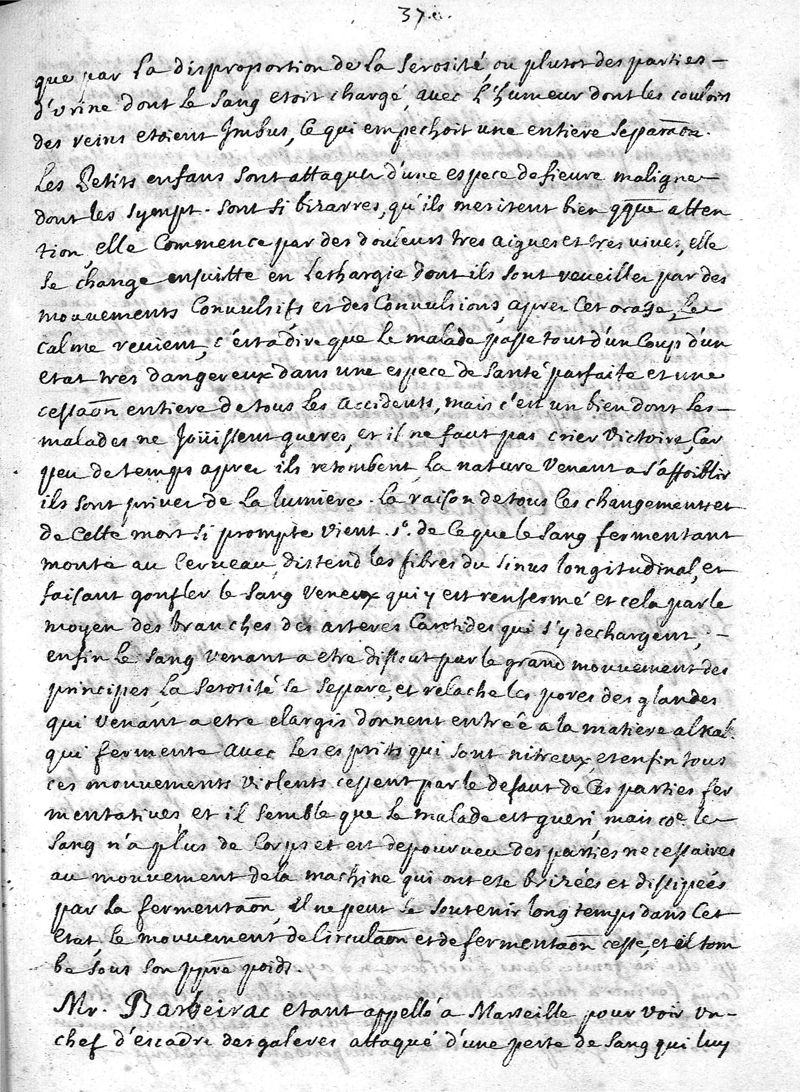 37.
que par la disproportion de la serosité, ou plutot des parties-
d'urine dont le sang etoit chargé, avec l'humeur dont les couloirs
des reins etoient Imbus, ce qui empechoit une entiere separaõn.
Les Petits enfans sont attaquez d'une espece de fievre maligne
dont les sympt. sont si bizarres, qu'ils meritent bien qq̃ue atten
tion, elle Commence par des douleurs tres aigues et tres vives, elle
se change ensuitte en Lethargie dont ils sont reveillez par des
mouvements Convulsifs et des Convulsions, aprez Cet orage, le
calme revient, c'est a dire que le malade passe tout d'un Coup d'un
etat tres dangereux dans une espece de santé parfaite et une
cessaõn entiere de tous les accidents, mais c'est un bien dont les-
malades ne Joüissent gueres, et il ne faut pas crier victoire, Car
peu de temps aprez ils retombent, la nature venant a s'affoiblir
ils sont privez de la lumiere. La raison de tous ces changements et
de Cette mort si prompte vient. 1°. de Ce que le sang fermentant
monte au Cerveau, distend les fibres du sinus longitudinal, et
faisant gonfler le sang veneux qui y est renfermé et cela par le
moyen des branches des arteres Carotides qui s'y dechargent, -
enfin le sang venant a etre dissout par le grand mouvement des
principes, la serosité se separe, et relache les pores des glandes
qui venant a etre elargis donnent entrée a la matiere alkal.
qui fermente avec les esprits qui sont nitreux, et enfin tous
ces mouvements violents cessent par le defaut de Ces parties fer
mentatives et il semble que le malade est gueri, mais cõe le
sang n'a plus de Corps et est depourveu des parties necessaires
au mouvement de la machine qui ont ete brizées et dissipées
par la fermentaõn, Il ne peut se soutenir long temps dans Cet
etat, le mouvement de Circulaõn et de fermentaõn cesse, et il tom
be sous son ppre poids.
Mr. Barbeirac etant appellé a Marseille pour voir un-
chef d'escadre des galeres attaqué d'une perte de sang qui luy